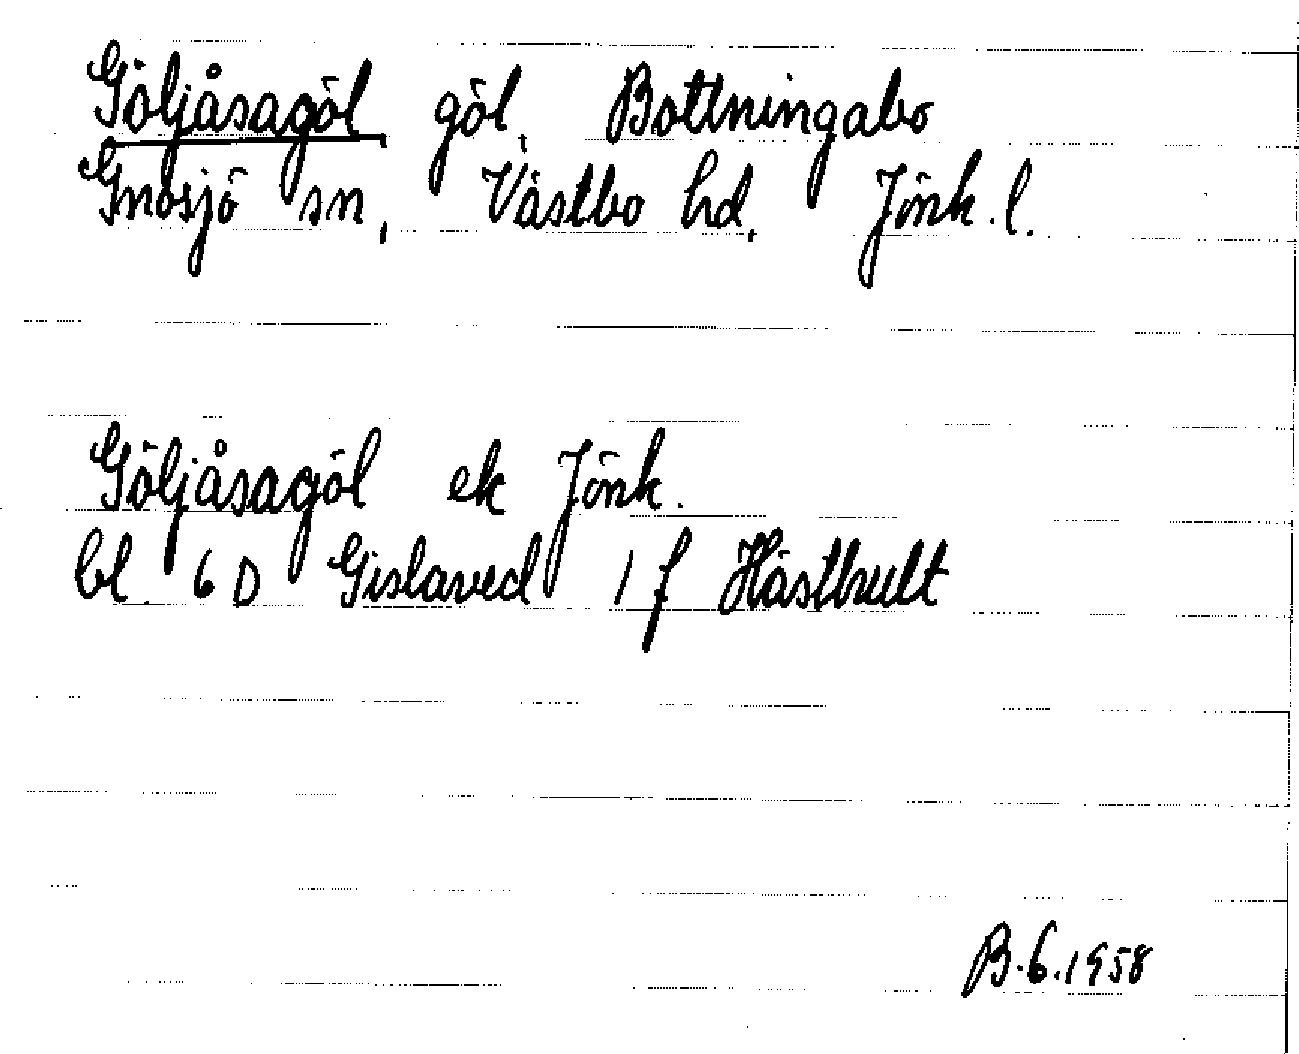 Göljåsagöl, göl, Bottningabo
Gnosjö sn, Västbo hd, Jönk. l.
Göljåsagöl ek Jönk.
bl. 6 D Gislaved 1 f Hästhult
B.6.1958